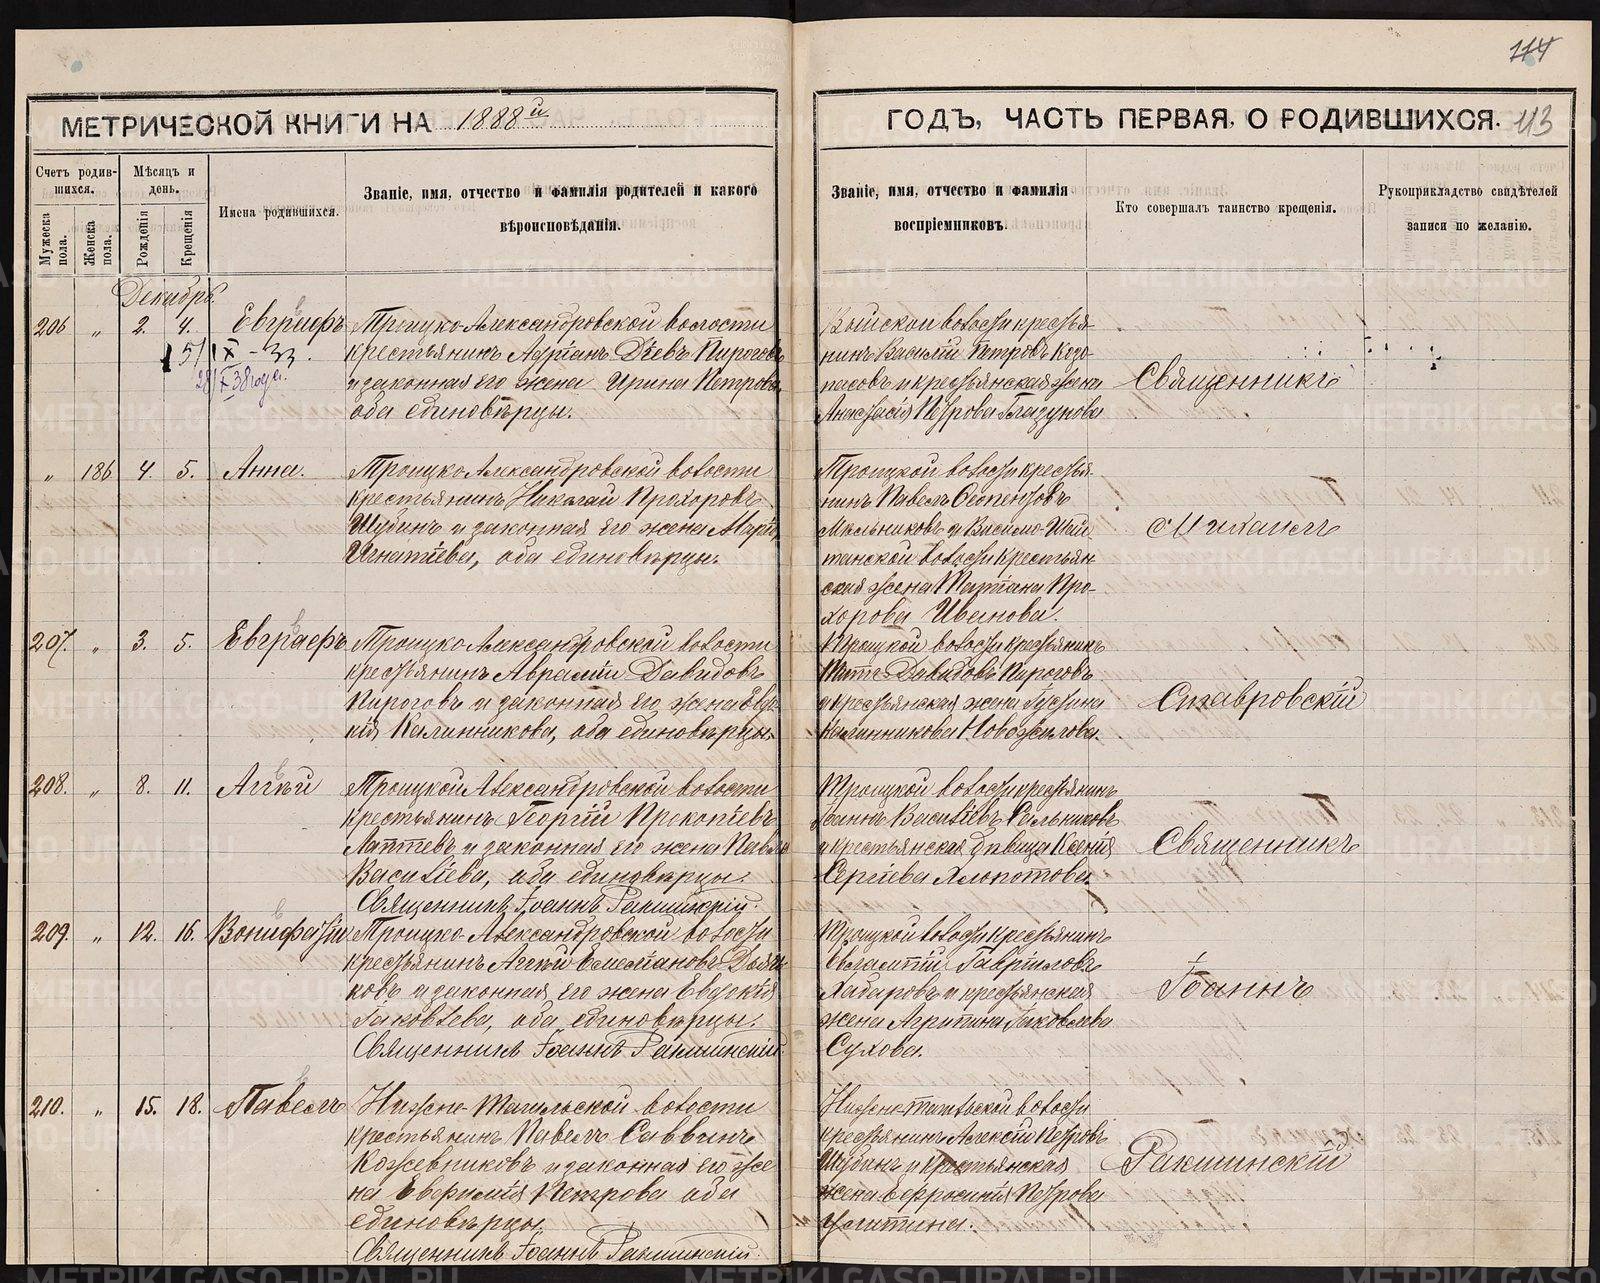 114
МЕТРИЧЕСКОЙ КНИГИ НА 1888й
ГОДЪ, ЧАСТЬ ПЕРВАЯ, О РОДИВШИХСЯ. 113
Счетъ родив-
шихся.
Мѣсяцъ и
день.
Мужеска
пола.
Женска
пола.
Рожденія
Крещенія
Имена родившихся.
Званіе, имя, отчество и фамилія родителей и какого
вѣроисповѣданія.
Званіе, имя, отчество и фамилія
воспріемниковъ.
Кто совершалъ таинство крещенія.
Рукоприкладство свидѣтелей
записи по желанію.
Декабрь
206 „ 2. 4. Евграфъ
Троицко-Александровской волости
крестьянинъ Адріанъ Діевъ Пироговъ
и законная его жена Ирина Петрова
оба единовѣрцы.
5/IX-33.
28/X 38 года.
крестья-
нинъ Василій Петровъ
и крестьянская жена
Анастасія Петрова Глазунова
Священникъ
„ 186 4. 5. Анна.
Троицко-Александровской волости
крестьянинъ Николай Прохоровъ
Шубинъ и законная его жена
Игнатіева, оба единовѣрцы.
Троицкой волости крестья-
нинъ Павелъ
Мельниковъ и Висимо-Шай-
танской волости крестьян-
ская жена Татіана Про-
хорова Иванова.
Михаилъ
207. „ 3. 5. Евграфъ
Троицко-Александровской волости
крестьянинъ Аврамій Давидовъ
Пироговъ и законная его жена Евдо-
кія Калинникова, оба единовѣрцы.
Троицкой волости крестьянинъ
Давидовъ Пироговъ
и крестьянская жена
Калинникова Новожилова.
Ставровскій
208. „ 8. 11. Аггѣй
Троицкой Александровской волости
крестьянинъ Георгій Прокопіевъ
Лаптевъ и законная его жена
Василіева, оба единовѣрцы.
Священникъ Іоаннъ Ракшинскій.
Троицкой волости крестьянинъ
Іванъ Василіевъ
и крестьянская дѣвица Ксенія
Сергіева Хлопотова.
Священникъ
209. „ 12. 16. Вонифатій
Троицко-Александровской волости
крестьянинъ Аггѣй Емеліановъ
ковъ и законная его жена Евдокія
Іаковлева, оба единовѣрцы.
Священникъ Іоаннъ Ракшинскій.
Троицкой волости крестьянинъ
Евлампій Гавриловъ
Хабаровъ и крестьянская
жена Агрипина Іаковлева
Сухова.
Іоаннъ
210. „ 15. 18. Павелъ
Нижне-Тагильской волости
крестьянинъ Павелъ Саввинъ
Кожевниковъ и законная его же
на Евфимія Петрова оба
единовѣрцы.
Священникъ Іоаннъ Ракшинскій.
Нижне-Тагильской волости
крестьянинъ Алексій Петровъ
Шубинъ и крестьянская
жена Ефросинія Петрова
Ракшинскій
METRIKI.GASO-URAL.RU